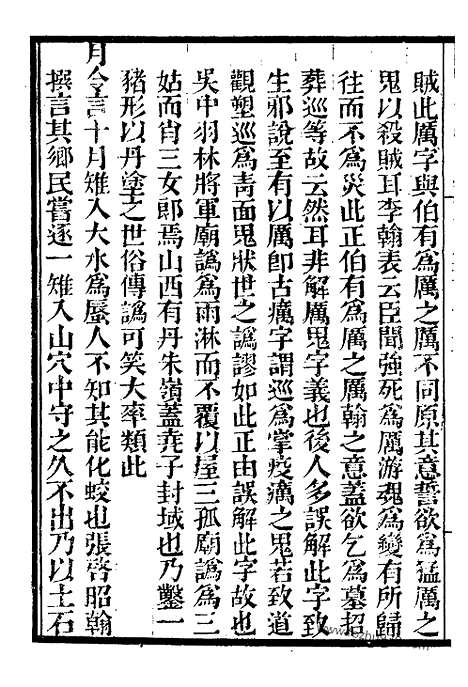 賊此厲字與伯有爲厲之厲不同原其意誓欲爲猛厲之
鬼以殺賊耳李翰表云臣聞強死爲厲游魂爲變有所歸
往而不爲災此正伯有爲厲之厲翰之意蓋欲乞爲墓招
葬巡等故云然耳非解厲鬼字義也後人多誤解此字致
生邪說至有以厲卽古癘字謂巡爲掌疫癘之鬼若致道
觀塑巡爲靑面鬼狀世之譌謬如此正由誤解此字故也
吳中羽林將軍廟譌爲雨淋而不覆以屋三孤廟譌爲三
姑而肖三女郞焉山西有丹朱嶺蓋堯子封域也乃鑿一
猪形以丹塗之世俗傳譌可笑大率類此
月令言十月雉入大水爲蜃人不知其能化蛟也張啓昭翰
撰言其鄉民嘗逐一雉入山穴中守之久不出乃以土石